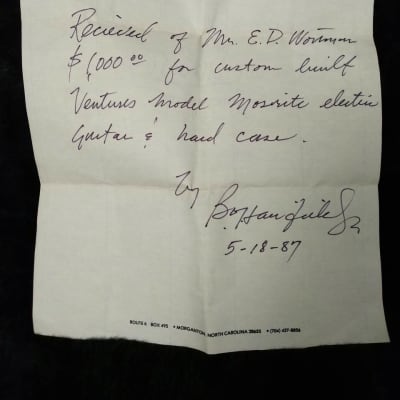 Recieved of Mr. E.D. Workman
$1,000 00 for custom built
Ventures Model Mosrite electric
guitar & hard case.
by
5-18-87
ROUTE 6 BOX 495 • MORGANTON, NORTH CAROLINA 28655 • (704) 437-8856